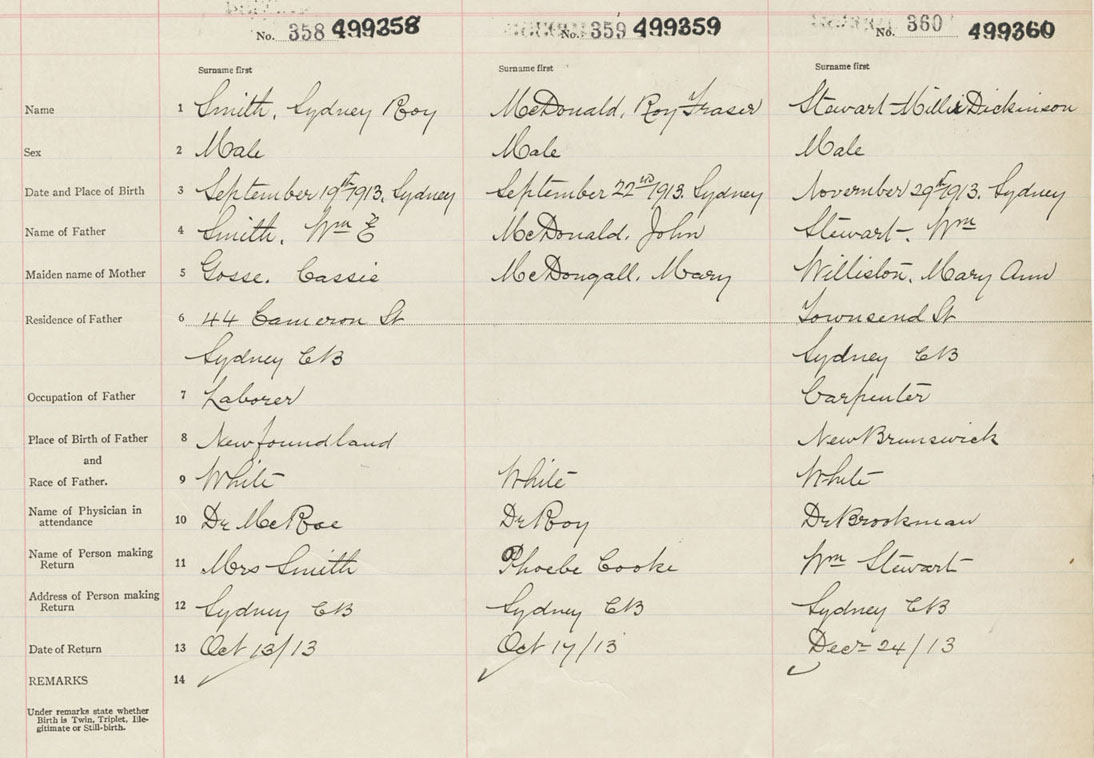 No. 358 499358 No. 359 499359 No. 360 499360
Surname first Surname first Surname first
Name 1 Smith, Sydney Roy McDonald, Roy Fraser Stewart Millie Dickinson
Sex 2 Male Male Male
Date and Place of Birth 3 September 19th 1913, Sydney September 22nd 1913. Sydney November 29th 1913. Sydney
Name of Father 4 Smith, Wm E McDonald, John Stewart, Wm
Maiden name of Mother 5 Gosse. Cassie McDougall, Mary Williston, Mary Ann
Residence of Father 6 44 Cameron St Townsend St
Sydney CB Sydney CB
Occupation of Father 7 Laborer Carpenter
Place of Birth of Father 8 Newfoundland New Brunswick
and
Race of Father. 9 White White White
Name of Physician in
attendance 10 Dr McRae Dr Roy Dr Brookman
Name of Person making
Return 11 Mrs Smith Phoebe Cooke Wm Stewart
Address of Person making
Return 12 Sydney CB Sydney CB Sydney CB
Date of Return 13 Oct 13/13 Oct 17/13 Decr 24/13
REMARKS 14
Under remarks state whether
Birth is Twin, Triplet, Ille-
gitimate or Still-birth.